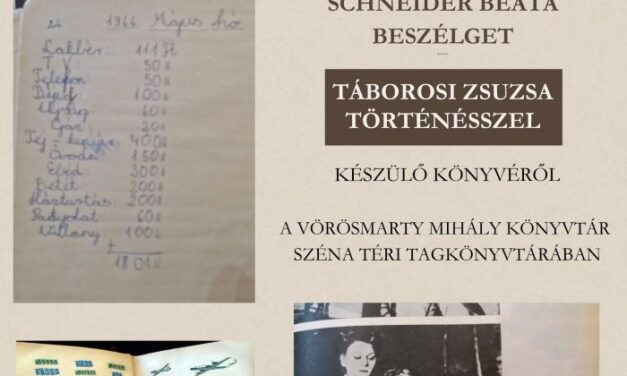 SCHNEIDER BEÁTA
BESZÉLGET
TÁBOROSI ZSUZSA
TÖRTÉNÉSSZEL
KÉSZÜLŐ KÖNYVÉRŐL
A VÖRÖSMARTY MIHÁLY KÖNYVTÁR
SZÉNA TÉRI TAGKÖNYVTÁRÁBAN
24 1966 Május hó.
Lakbér: 111 Ft
T V. 50 "
Telefon 50 "
100 "
Ujság 60 "
Gáz 20 "
Tej-kenyér 400 "
Óvoda 150 "
Ebéd 300 "
Betét 200 "
Háztartás: 200 "
Patyolat: 60 "
Villany: 100 "
+
1801 "